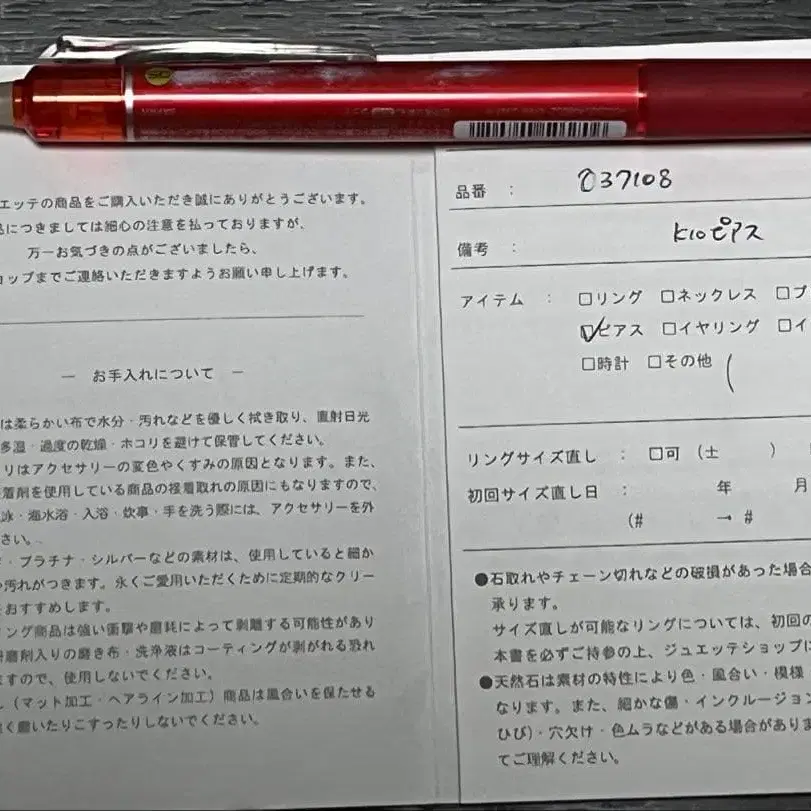 エッテの商品をご購入いただき誠にありがとうございます。
につきましては細心の注意を払っておりますが、
万一お気づきの点がございましたら、
ョップまでご連絡いただきますようお願い申し上げます。
― お手入れについて ―
は柔らかい布で水分・汚れなどを優しく拭き取り、直射日光
多湿・過度の乾燥・ホコリを避けて保管してください。
リはアクセサリーの変色やくすみの原因となります。また、
着剤を使用している商品の接着取れの原因にもなりますので、
泳・海水浴・入浴・炊事・手を洗う際には、アクセサリーを外
さい。
・プラチナ・シルバーなどの素材は、使用していると細か
汚れがつきます。永くご愛用いただくために定期的なクリー
おすすめします。
ィング商品は強い衝撃や磨耗によって剥離する可能性があり
研磨剤入りの磨き布・洗浄液はコーティングが剥がれる恐れ
ますので、使用しないでください。
（マット加工・ヘアライン加工）商品は風合いを保たせる
く磨いたりこすったりしないでください。
品番 : 037108
備考 : K10ピアス
アイテム : □リング □ネックレス □ブ
☑ピアス □イヤリング □イ
□時計 □その他 (
リングサイズ直し : □可 (土 )
初回サイズ直し日 : 年 月
(# → #
●石取れやチェーン切れなどの破損があった場合
承ります。
サイズ直しが可能なリングについては、初回の
本書を必ずご持参の上、ジュエッテショップに
●天然石は素材の特性により色・風合い・模様
なります。また、細かな傷・インクルージョン
ひび)・穴欠け・色ムラなどがある場合がありま
てご理解ください。